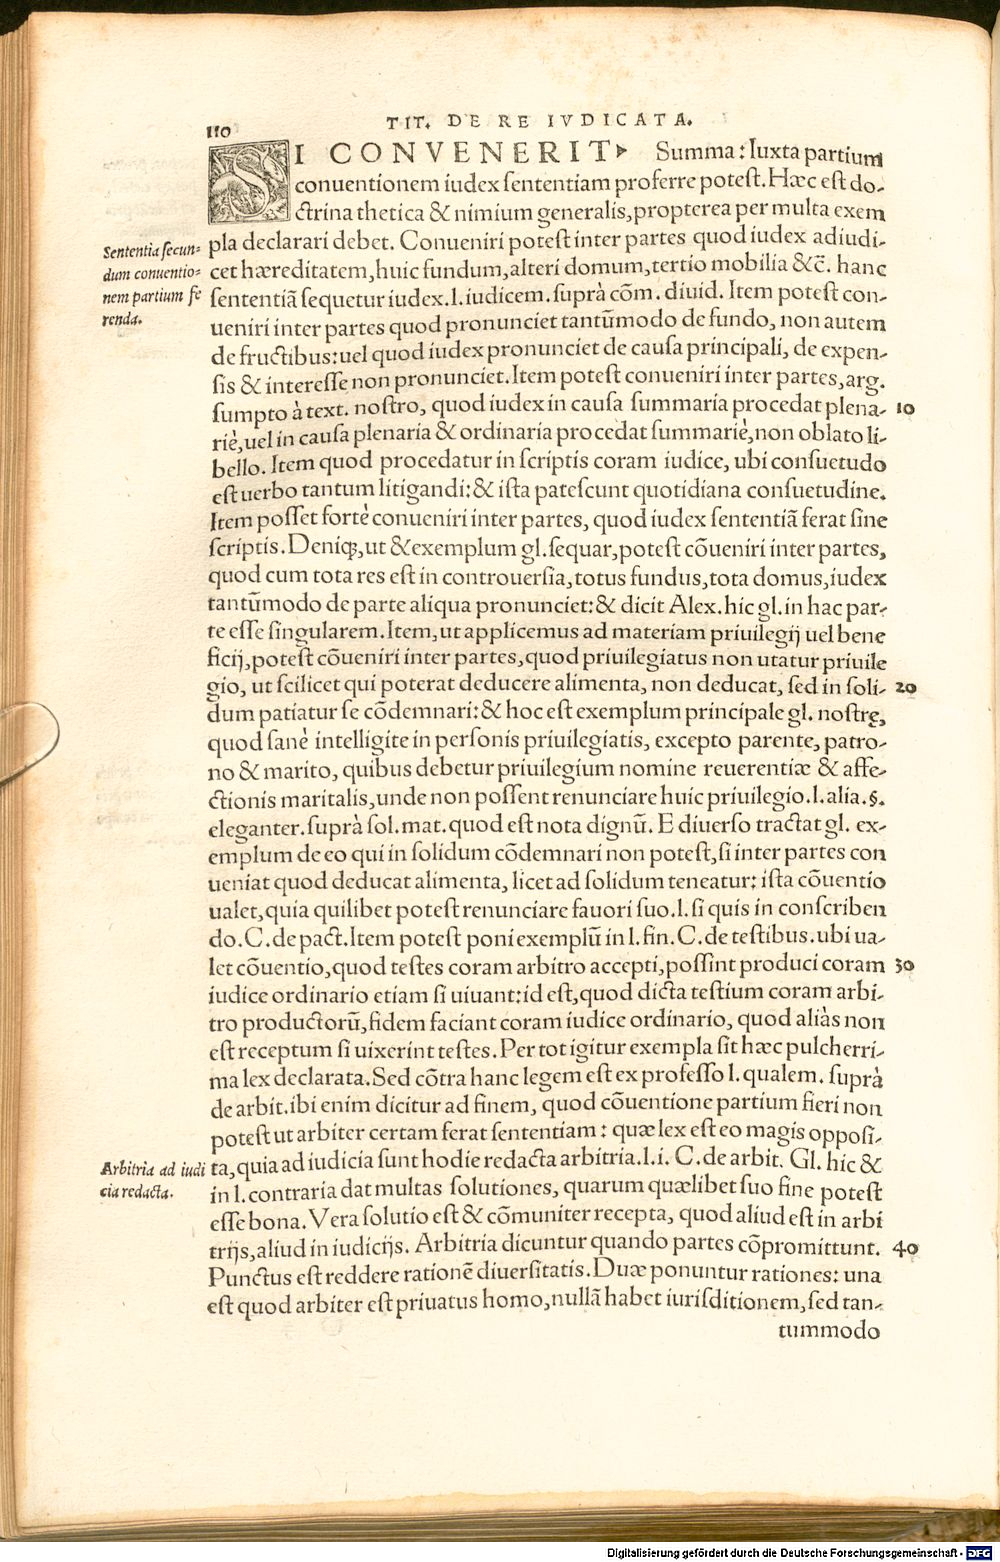 110
TIT. DE RE IVDICATA.
SI CONVENERIT▸ Summa: Iuxta partium
conuentionem iudex ſententiam proferre poteſt. Hæc eſt do-
ctrina thetica & nimium generalis, propterea per multa exem
Sententia ſecun-
dum conuentio-
nem partium fe
renda.
pla declarari debet. Conueniri poteſt inter partes quod iudex adiudi-
cet hæreditatem, huic fundum, alteri domum, tertio mobilia &c̄. hanc
ſententiã ſequetur iudex. l. iudicem. ſuprà cõm. diuid. Item poteſt con-
ueniri inter partes quod pronunciet tantũmodo de fundo, non autem
de fructibus: uel quod iudex pronunciet de cauſa principali, de expen-
ſis & intereſſe non pronunciet. Item poteſt conueniri inter partes, arg.
ſumpto à text. noſtro, quod iudex in cauſa ſummaria procedat plena- 10
riè, uel in cauſa plenaria & ordinaria procedat ſummariè, non oblato li-
bello. Item quod procedatur in ſcriptis coram iudice, ubi conſuetudo
eſt uerbo tantum litigandi: & iſta pateſcunt quotidiana conſuetudine.
Item poſſet fortè conueniri inter partes, quod iudex ſententiã ferat ſine
ſcriptis. Deniq;, ut & exemplum gl. ſequar, poteſt cõueniri inter partes,
quod cum tota res eſt in controuerſia, totus fundus, tota domus, iudex
tantũmodo de parte aliqua pronunciet: & dicit Alex. hic gl. in hac par-
te eſſe ſingularem. Item, ut applicemus ad materiam priuilegij uel bene
ficij, poteſt cõueniri inter partes, quod priuilegiatus non utatur priuile
gio, ut ſcilicet qui poterat deducere alimenta, non deducat, ſed in ſoli- 20
dum patiatur ſe cõdemnari: & hoc eſt exemplum principale gl. noſtrę,
quod ſanè intelligite in perſonis priuilegiatis, excepto parente, patro-
no & marito, quibus debetur priuilegium nomine reuerentiæ & affe-
ctionis maritalis, unde non poſſent renunciare huic priuilegio. l. alia. §.
eleganter. ſuprà ſol. mat. quod eſt nota dignũ. E diuerſo tractat gl. ex-
emplum de eo qui in ſolidum cõdemnari non poteſt, ſi inter partes con
ueniat quod deducat alimenta, licet ad ſolidum teneatur: iſta cõuentio
ualet, quia quilibet poteſt renunciare fauori ſuo. l. ſi quis in conſcriben
do. C. de pact. Item poteſt poni exemplũ in l. fin. C. de teſtibus. ubi ua-
let cõuentio, quod teſtes coram arbitro accepti, poſſint produci coram 30
iudice ordinario etiam ſi uiuant: id eſt, quod dicta teſtium coram arbi-
tro productorũ, fidem faciant coram iudice ordinario, quod aliàs non
eſt receptum ſi uixerint teſtes. Per tot igitur exempla ſit hæc pulcherri-
ma lex declarata. Sed cõtra hanc legem eſt ex profeſſo l. qualem. ſuprà
de arbit. ibi enim dicitur ad finem, quod cõuentione partium fieri non
poteſt ut arbiter certam ferat ſententiam: quæ lex eſt eo magis oppoſi-
Arbitria ad iudi
cia redacta.
ta, quia ad iudicia ſunt hodie redacta arbitria. l. i. C. de arbit. Gl. hic &
in l. contraria dat multas ſolutiones, quarum quælibet ſuo fine poteſt
eſſe bona. Vera ſolutio eſt & cõmuniter recepta, quod aliud eſt in arbi
trijs, aliud in iudicijs. Arbitria dicuntur quando partes cõpromittunt. 40
Punctus eſt reddere rationẽ diuerſitatis. Duæ ponuntur rationes: una
eſt quod arbiter eſt priuatus homo, nullã habet iurisditionem, ſed tan-
tummodo
Digitalisierung gefördert durch die Deutsche Forschungsgemeinschaft - DFG